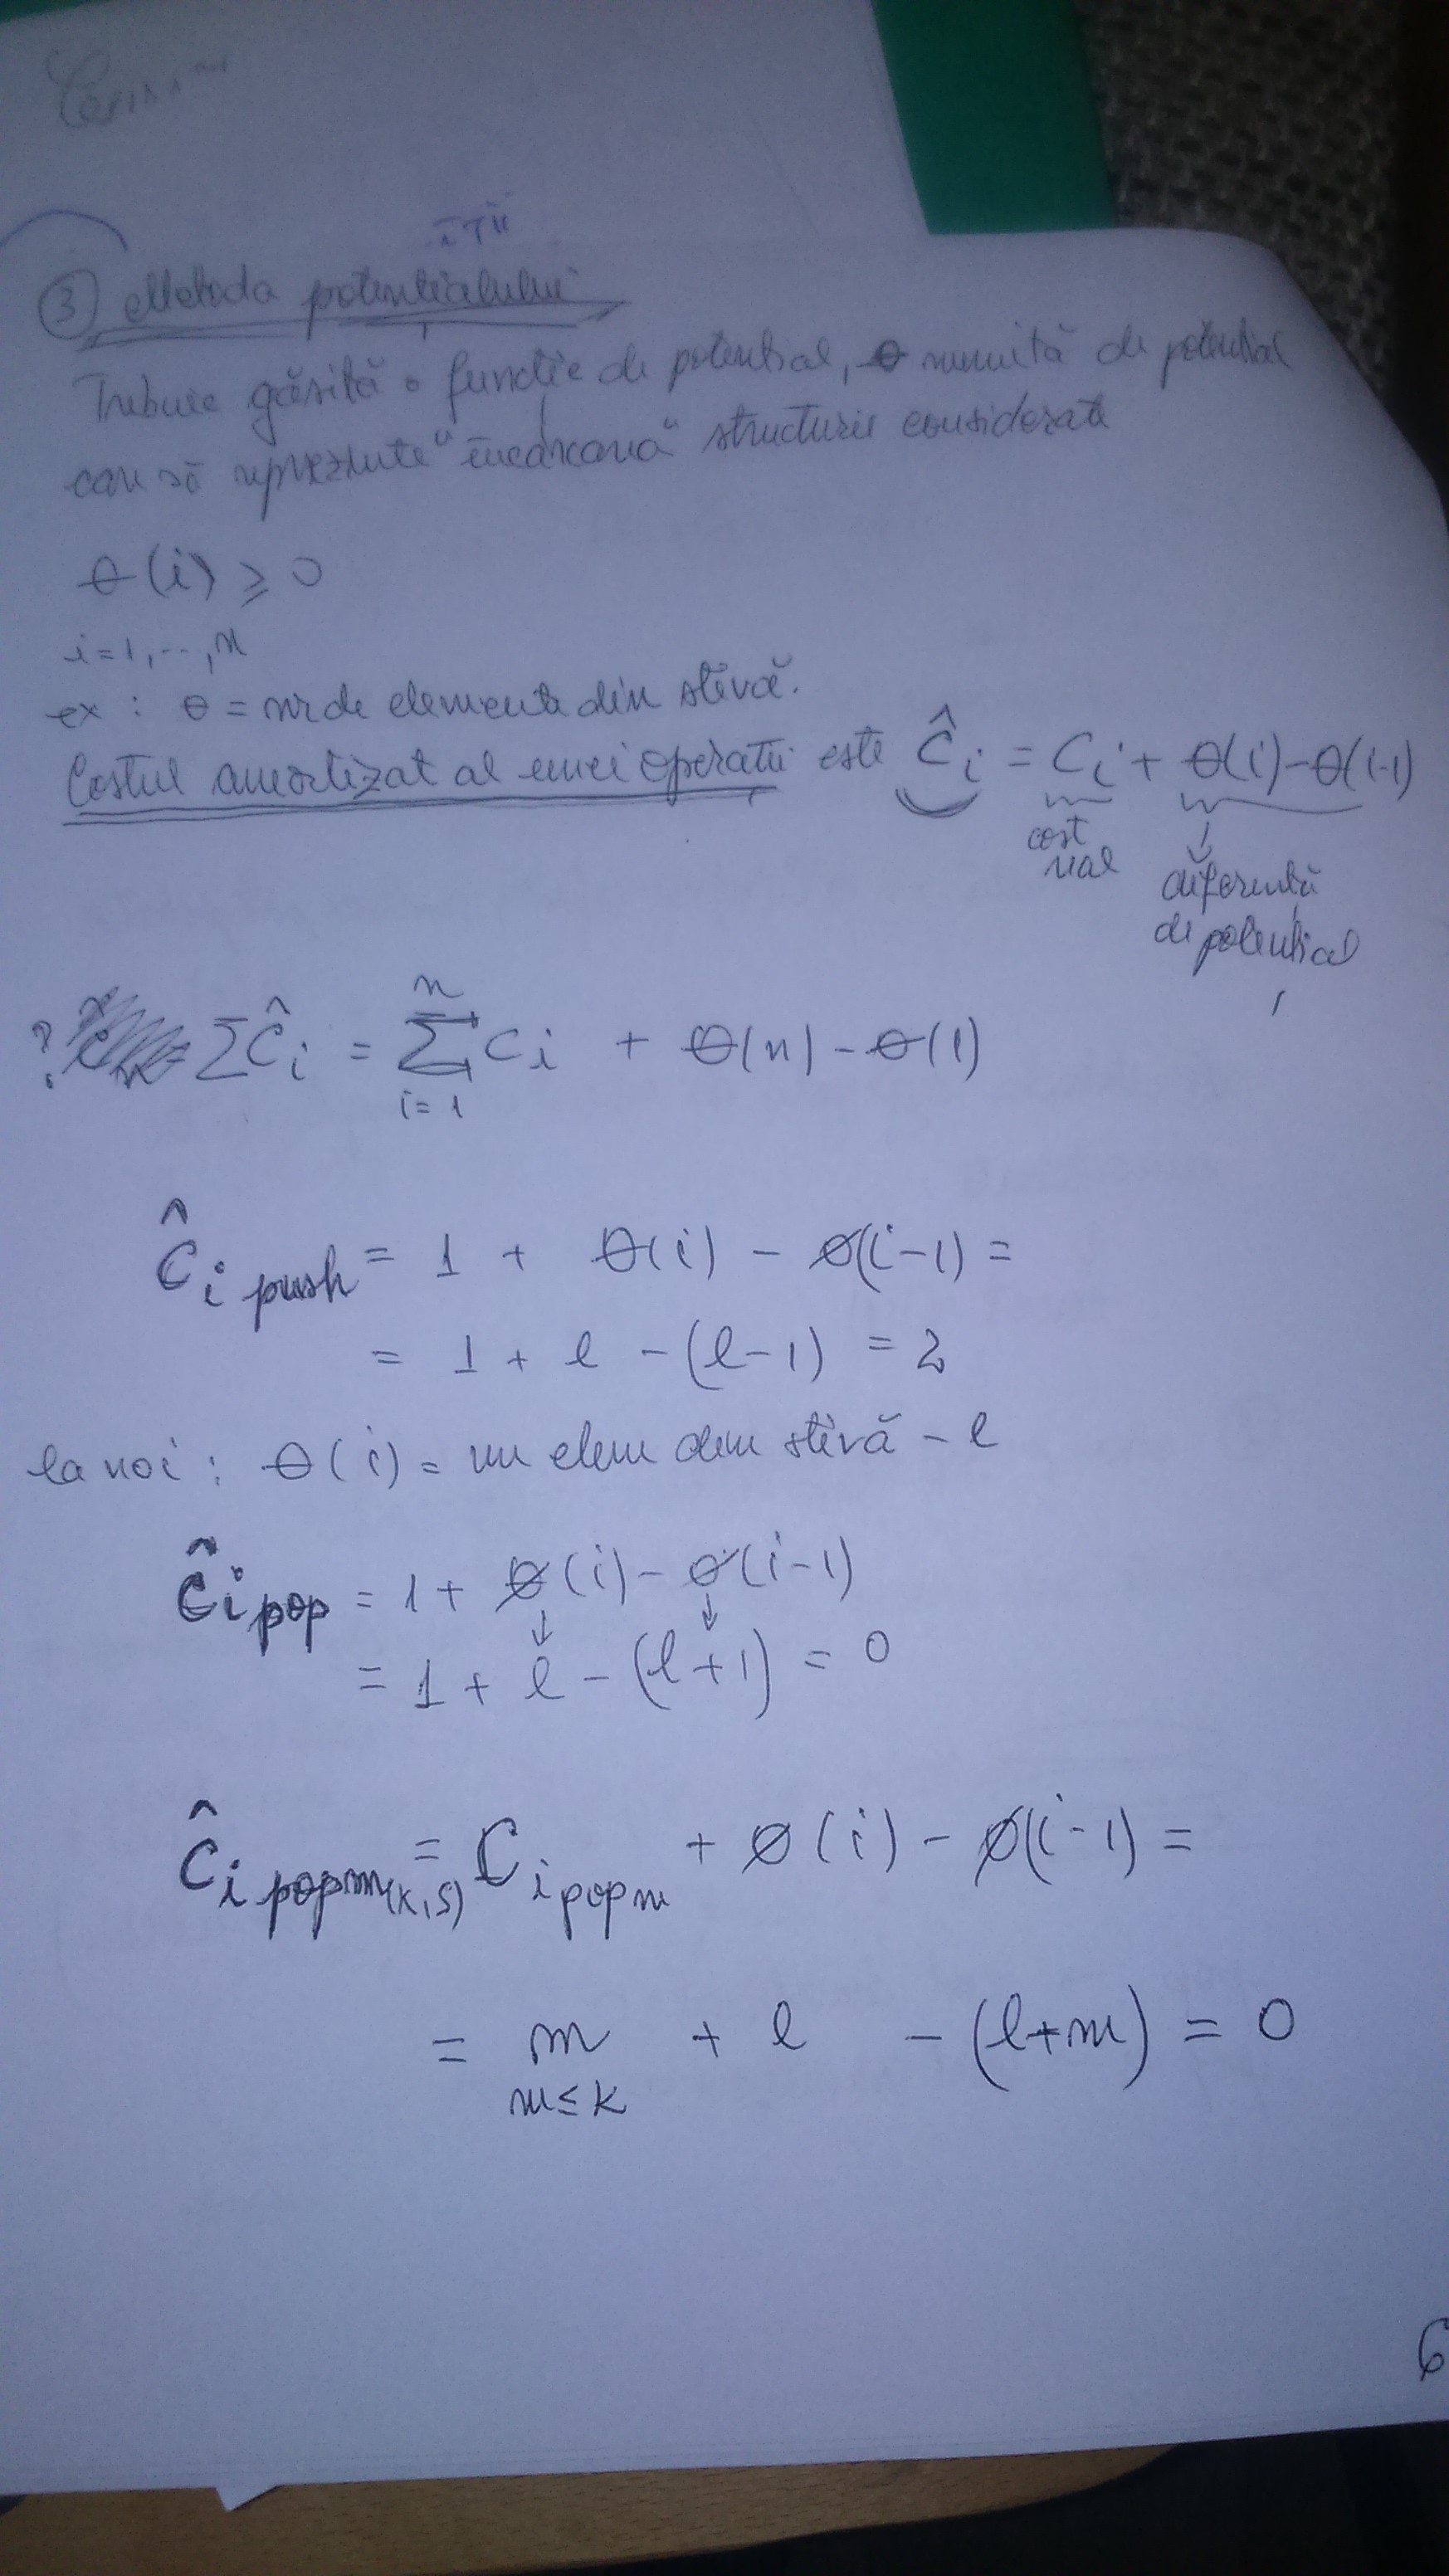 ③ Metoda potențialului
Trebuie găsită o funcție de potential, θ numită de potential
care să reprezinte "încărcarea" structurii considerate
θ(i) ≥ 0
i=1,...,n
ex: θ = nr de elemente din stivă.
Costul amortizat al unei operații este Ĉi = Ci + θ(i)-θ(i-1)
cost real
diferență de potențial
? ΣĈi = Σ(i=1..n) Ci + θ(n) - θ(1)
Ĉi push = 1 + θ(i) - θ(i-1) =
= 1 + l - (l-1) = 2
la noi: θ(i) = nr elem din stivă - l
Ĉi pop = 1 + θ(i) - θ(i-1)
= 1 + l - (l+1) = 0
Ĉi popm(k,S) = Ci popm + ø(i) - ø(i-1) =
= m + l - (l+m) = 0
m≤k
6